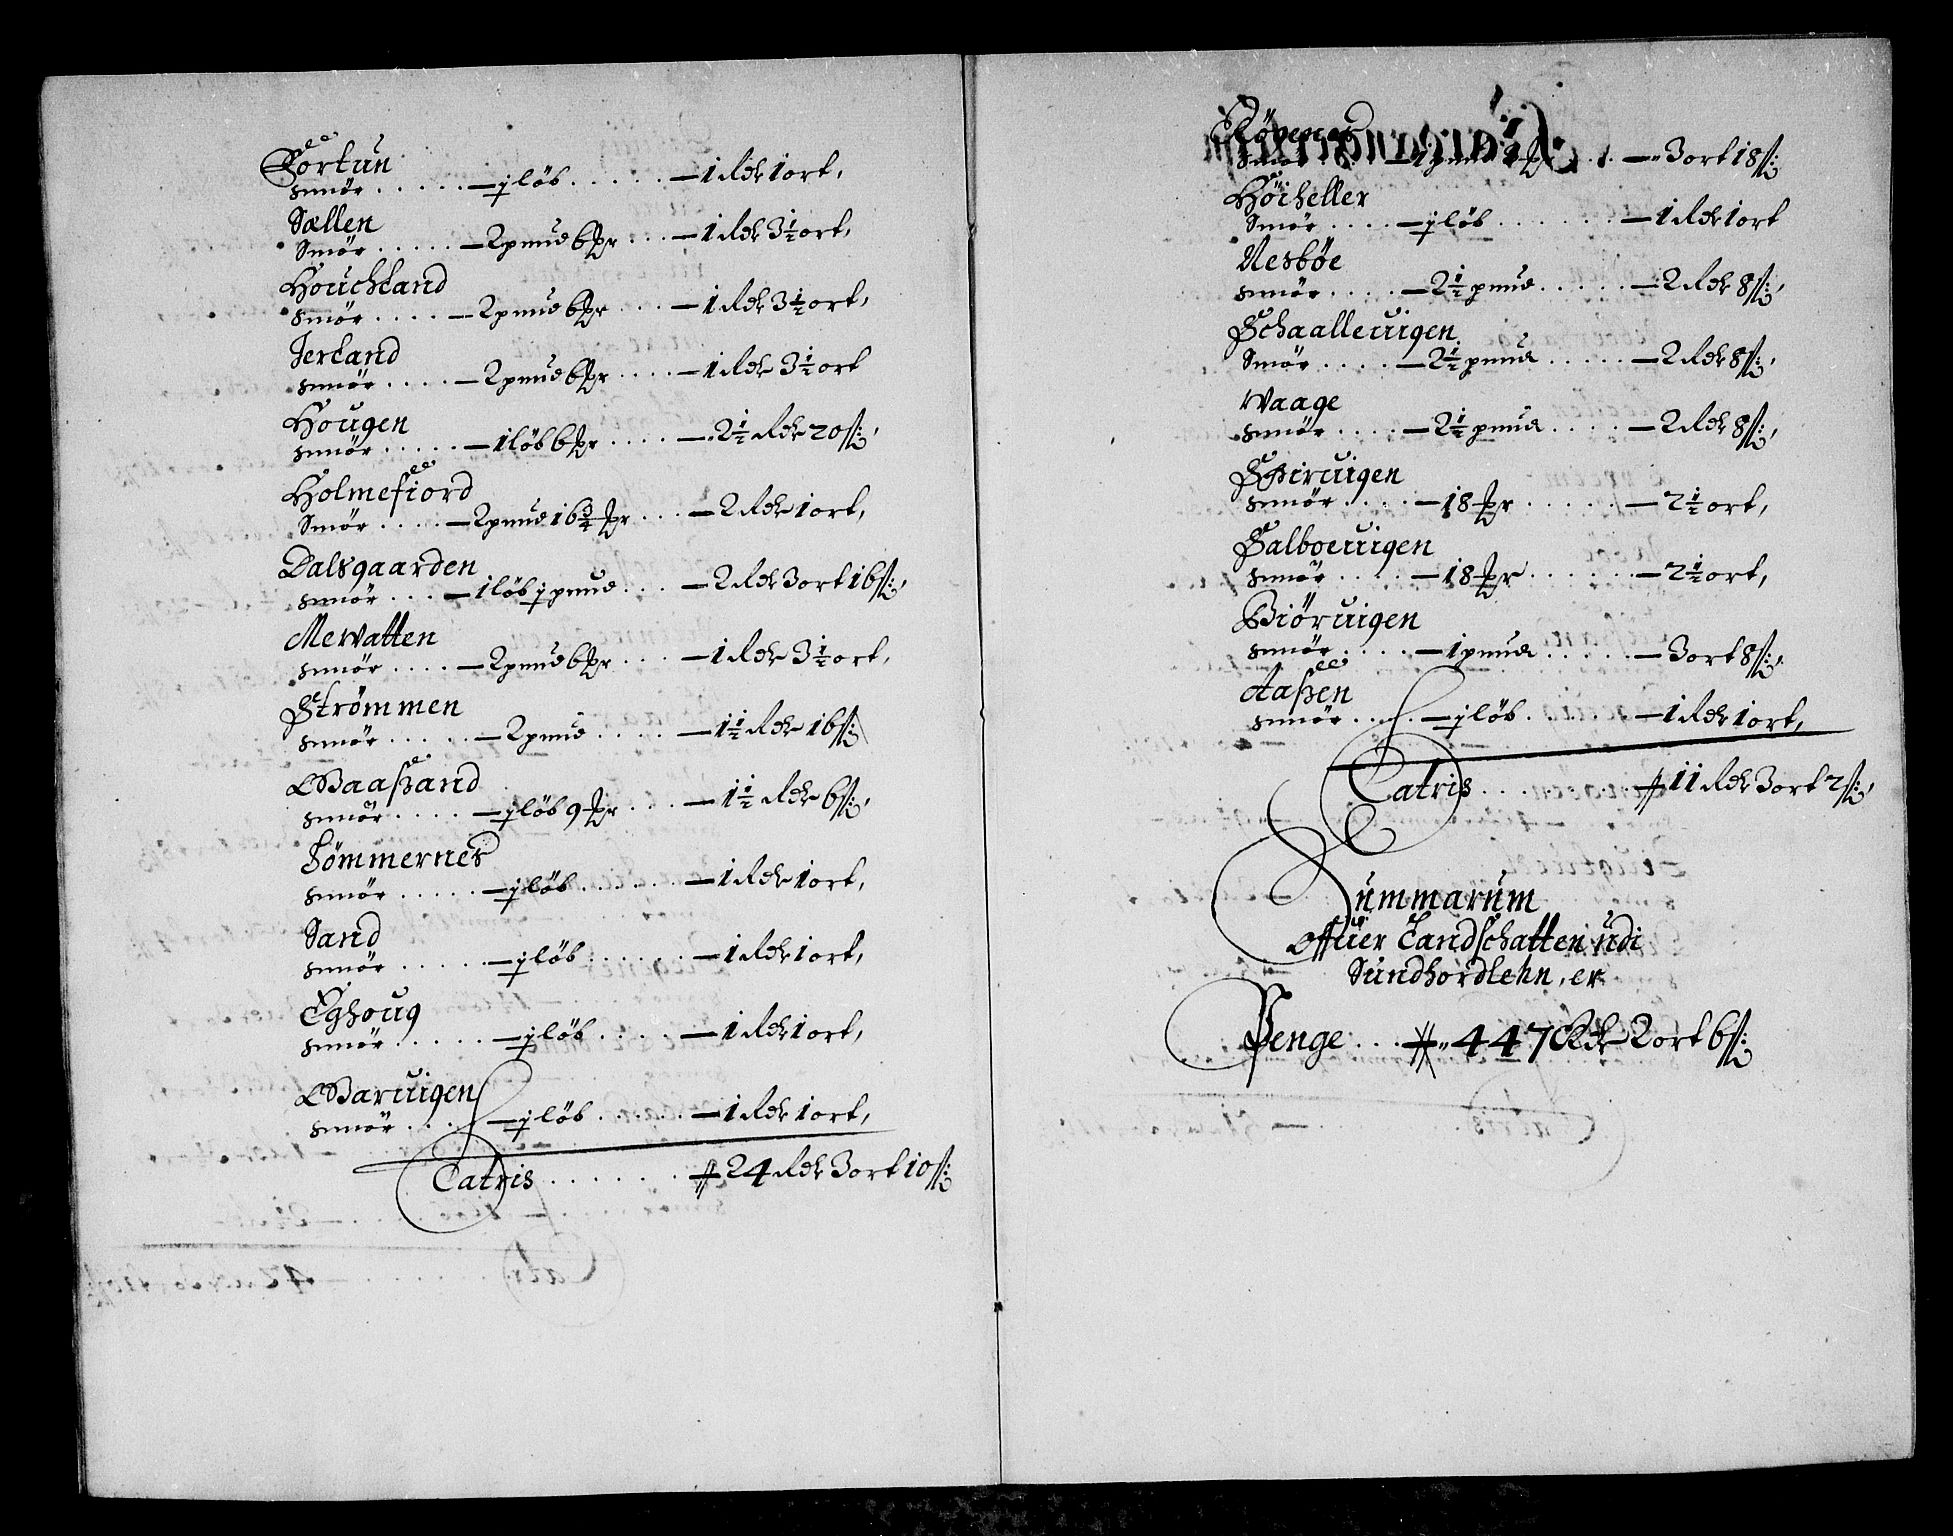 Fortun
Smör . . . . . — j löb . . . . . — 1 Rdr 1 ort,
Sællen
Smör . . . . . — 2 pmud 6 pr . . . — 1 Rdr 3 1/2 ort,
Houchland
Smör . . . . — 2 pmud 6 pr . . . — 1 Rdr 3 1/2 ort,
Jerland
Smör . . . . — 2 pmud 6 pr . . . . — 1 Rdr 3 1/2 ort
Hougen
Smör . . . . . — 1 löb 6 pr . . . . — 2 1/2 Rdr 20 ß:
Holmefiord
Smör . . . . — 2 pmud 16 3/4 pr . . . — 2 Rdr 1 ort,
Dalsgaarden
Smör . . . — 1 löb j pmud . . . — 2 Rdr 3 ort 16 ß:,
Mewatten
Smör . . . . — 2 pmud 6 pr . . . — 1 Rdr 3 1/2 ort,
Strömmen
Smör . . . . . — 2 pmud . . . . . — 1 1/2 Rdr 16 ß:
Baaßand
Smör . . . . — j löb 9 pr . . . — 1 1/2 Rdr 6 ß:,
Tömmernes
Smör . . . . . — j löb . . . . . . — 1 Rdr 1 ort,
Sand
Smör . . . . . — j löb . . . . . — 1 Rdr 1 ort,
Eghoug
Smör . . . . . — j löb . . . . — 1 Rdr 1 ort,
Baruigen
Smör . . . . — j löb . . . . . — 1 Rdr 1 ort,
Latris . . . . . . . 24 Rdr 3 ort 10 ß:
Smör . . . . — 1 pmud . . . — 3 ort 18 ß:
Höiheller
Smör . . . . — j löb . . . . . . — 1 Rdr 1 ort
Nesböe
Smör . . . . — 2 1/2 pmud . . . . . — 2 Rdr 8 ß:,
Schaalleuigen
Smör . . . . — 2 1/2 pmud . . . . . — 2 Rdr 8 ß:,
Waage
Smör . . . . — 2 1/2 pmud . . . . — 2 Rdr 8 ß:,
Spiruigen
Smör . . . . — 18 pr . . . . . — 2 1/2 ort,
Salboeuigen
Smör . . . . — 18 pr . . . . . — 2 1/2 ort,
Biöruigen
Smör . . . . — 1 pmud . . . . . — 3 ort 8 ß:,
Aaßen
Smör . . . . — j löb . . . . . — 1 Rdr 1 ort,
Latris . . . . . . . 11 Rdr 3 ort 2 ß:,
Summarum
Offuer Landschatten udi
Sundhordlehn, er
Penge . . . 447 Rdr 2 ort 6 ß: